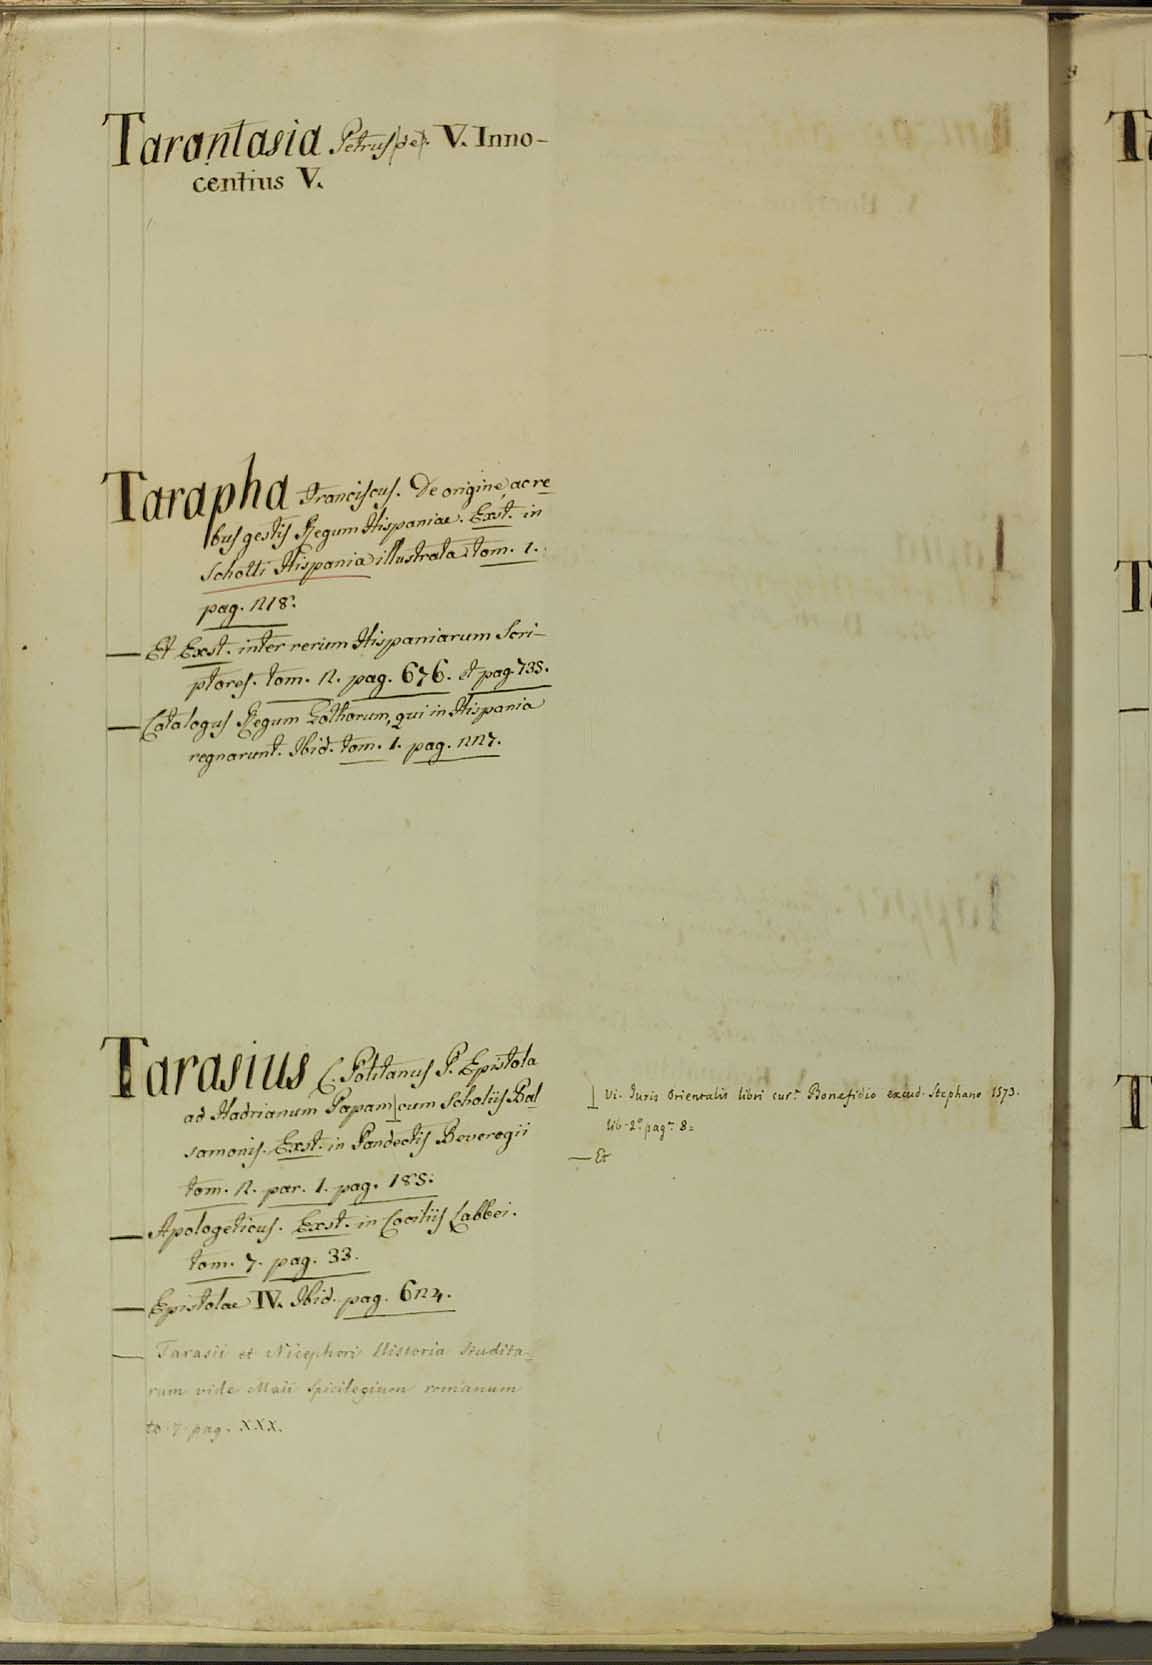 Tarantasia Petrus (de). V. Inno-
centius V.
Tarapha Franciscus. De origine, ac re
bus gestis Regum Hispaniae. Exst. in
Schotti Hispania illustrata tom. 1.
pag. 218.
— Et Exst. inter rerum Hispaniarum Scri-
ptores. tom. 2. pag. 676. et pag. 735.
— Catalogus Regum Gothorum, qui in Hispania
regnarunt. Ibid. tom. 1. pag. 227.
Tarasius C. Politanus P. Epistola
ad Hadrianum Papam cum Scholiis Bal
samonis. Exst. in Pandectis Beveregii
tom. 2. par. 1. pag. 185.
— Apologeticus. Exst. in Cociliis Labbei.
tom. 7. pag. 33.
— Epistolae IV. Ibid. pag. 624.
— Tarasii et Nicephori Historia Studita-
rum vide Maii Spicilegium romanum
to 7 pag. XXX.
Vi. Juris Orientalis libri cur. Bonefidio excud. Stephano 1573.
lib. 2º pag. 8=
— Et
T
T
T